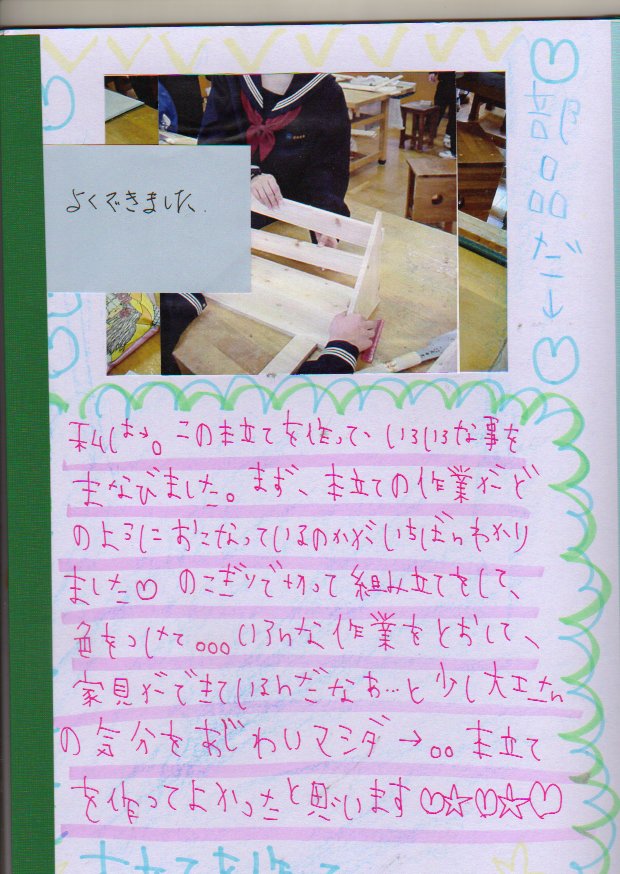 部品だ↓
よくできました.
私は→。この本立てを作って、いろいろな事を
まなびました。まず、本立ての作業がど
のようにおこなっているのかがいちばんわかり
ました♡ のこぎりで切って組み立てをして、
色をつけて。。。いろんな作業をとおして、
家具ができているんだなぁ…と少し大工さん
の気分をあじわいマシダ→。。本立て
を作ってよかったと思います♡☆♡☆♡
本立てを作って